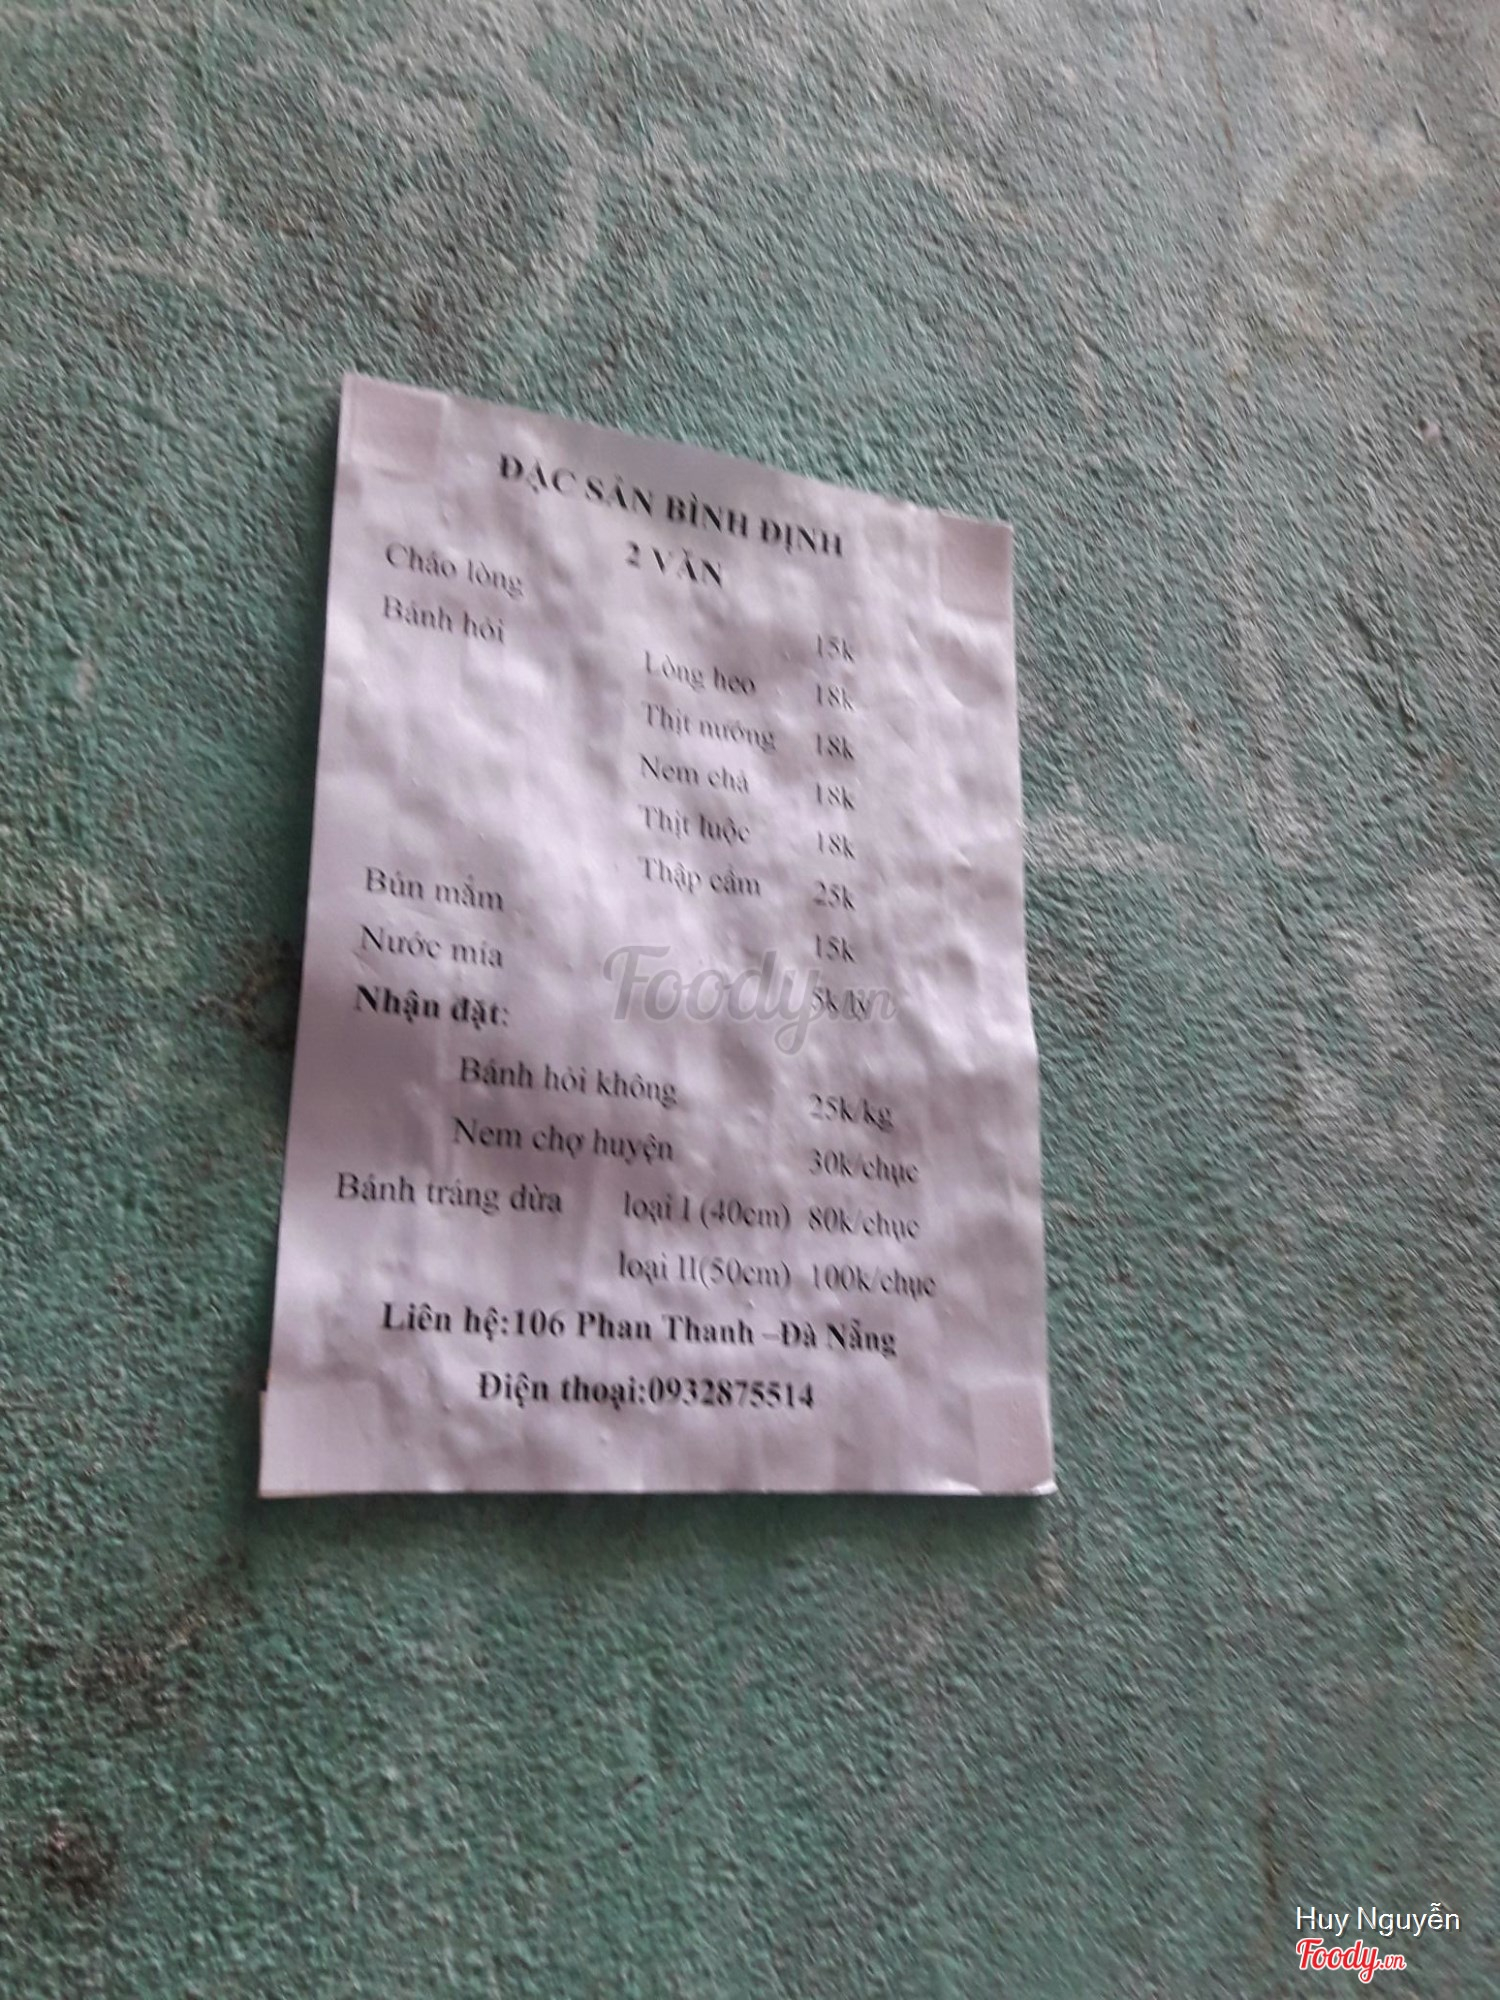 ĐẶC SẢN BÌNH ĐỊNH
2 VĂN
Cháo lòng 15k
Bánh hỏi Lòng heo 18k
Thịt nướng 18k
Nem chả 18k
Thịt luộc 18k
Thập cẩm 25k
Bún mắm 15k
Nước mía 5k/ly
Nhận đặt:
Bánh hỏi không 25k/kg
Nem chợ huyện 30k/chục
Bánh tráng dừa loại I (40cm) 80k/chục
loại II(50cm) 100k/chục
Liên hệ:106 Phan Thanh –Đà Nẵng
Điện thoại:0932875514
Foody.vn
Huy Nguyễn
Foody.vn